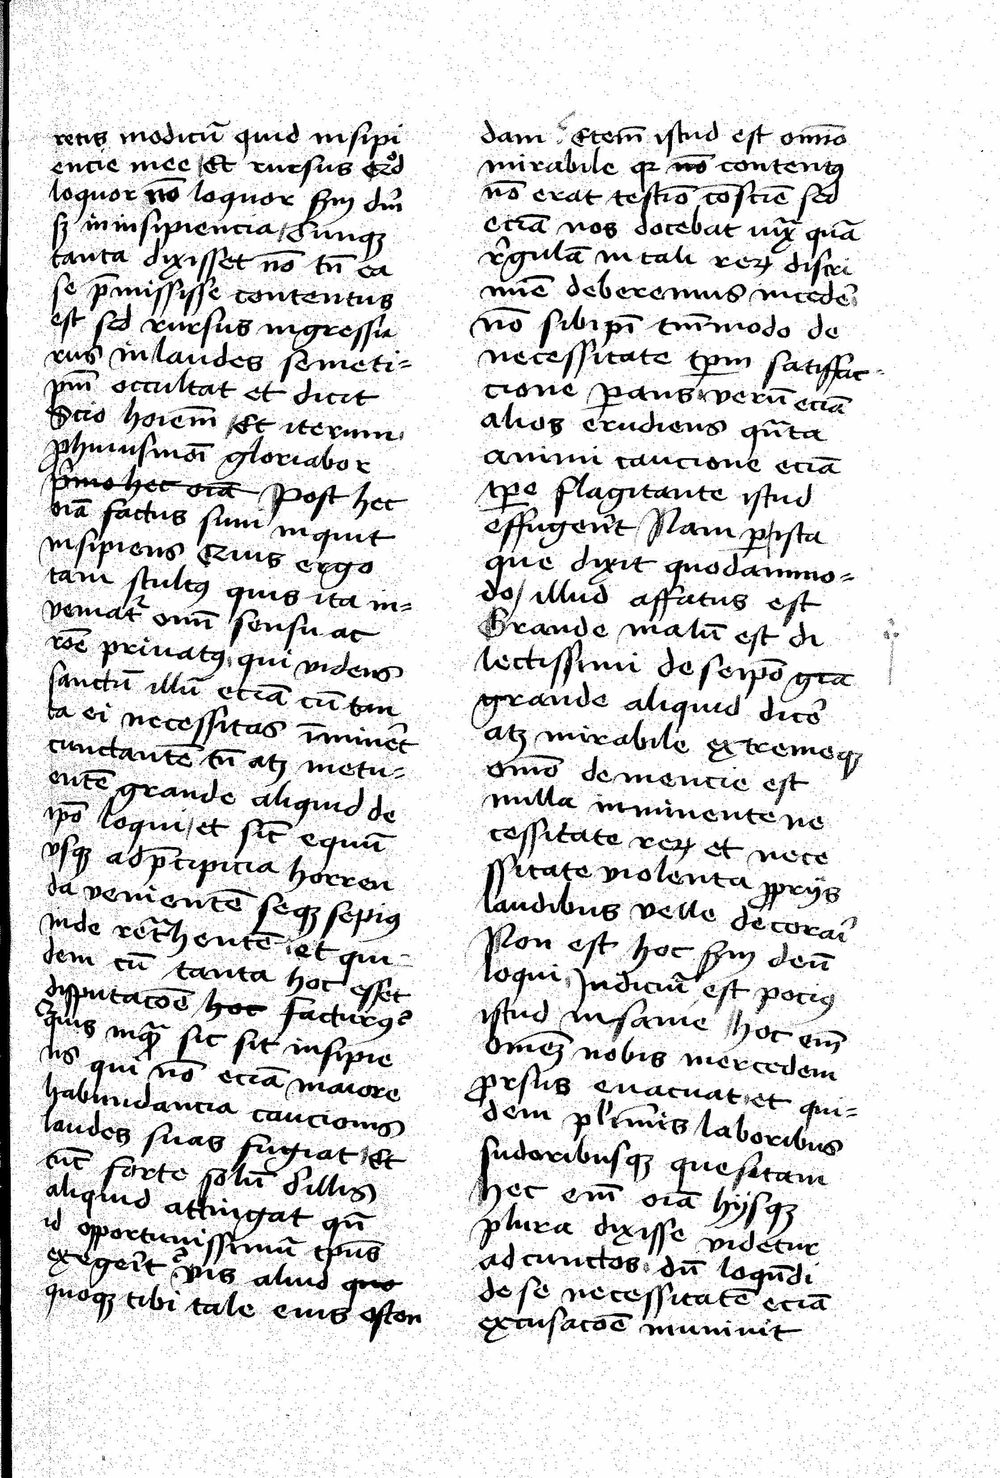 retis modicū quid insipi
encie mee Et rursus Quod
loquor nō loquor scdm dn̄m
sꝫ in insipiencia Cunqꝫ
tanta dixisset nō tn̄ ea
se p̄misisse contentus
est sed rursus ingressu
rus in laudes semeti-
pm̄ occultat et dicit
Scio hoīem Et iterum
ꝓ huiusmōi gloriabor
pͥmo hec oīa Post hec
oīa factus sum inquit
insipiens Quis ergo
tam stultꝰ quis ita in-
veniat᷑ omī sensu ac
rōe privatꝰ qui videns
sanctū illū eciā cū tan
ta ei necessitas īmineret
cunctantē tn̄ atꝫ metu-
entē grande aliquid de
ipō loqui et sic̄ equū
usqꝫ ad p̄cipicia horren
da venientē seqꝫ sepiꝰ
inde ret᷑hentē et qui-
dem cū tanta hoc esset
disputacōe hoc facturꝰ
Quis inquam sic sit insipie
ns qui nō eciā maiore
habundancia caucionis
laudes suas fugiat Et
tūc forte solū C illis
aliquid attingat qn̄
id opportunissimū tp̄us
exegerit Vis aliud quo
quoqꝫ tibi tale eius osten
dam Etem̄ istud est omīo
mirabile qꝛ nō contentꝰ
nō erat testīo cōscīe sed
eciā nos docebat iuxᵃ quā
regulā in tali reꝝ discri
mīe deberemus incedere
nō sibip̄i tm̄modo de
necessitate tp̄m satisfac-
cione ꝑans verū eciā
alios erudiens qn̄ta
animi caucione eciā
tꝑe flagitante istud
effugerīt Nam ꝑ ista
que dixit quodammo-
do illud affatus est
Grande malū est di
lectissimi de seipō grā
grande aliquid dicere
atꝫ mirabile extremeqꝫ
omīo demencie est
nulla inminente ne
cessitate reꝝ et nece
ssitate violenta ꝓprijs
laudibus velle decorari
Non est hoc scdm deū
loqui Indiciū est pociꝰ
istud insanie hoc em̄
omnem nobis mercedem
ꝓrsus evacuat et qui-
dem plurimis laboribus
sudoribusqꝫ quesitam
Hec em̄ oīa hijsqꝫ
plura dixisse videtur
ad cunctos dū loqn̄di
de se necessitatē eciā
excusacōe munivit